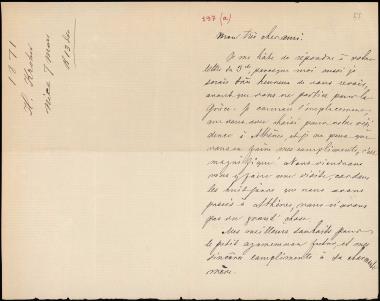 1871
Nice 7 Mars
R 13 do
197 (a)
Mon très cher ami.
Je me hâte de répondre à votre
lettre du 3 ct, parceque moi aussi je
serais bien heureux de vous revoir,
avant que vous ne partiez pour la
Grèce. Je connais l'emplacement
que vous avez choisi pour votre rési
dence à Athènes et je ne peux que
vous en faire mes compliments, c'est
magnifique! Nous viendrons
vous y faire une visite, car dans
les huit jours que nous avons
passés à Athènes, nous n'avons
pas vu grand chose.
Mes meilleurs souhaits pour
le petit Agamemnon futur, et mes
sincères compliments à sa charmante
mère.